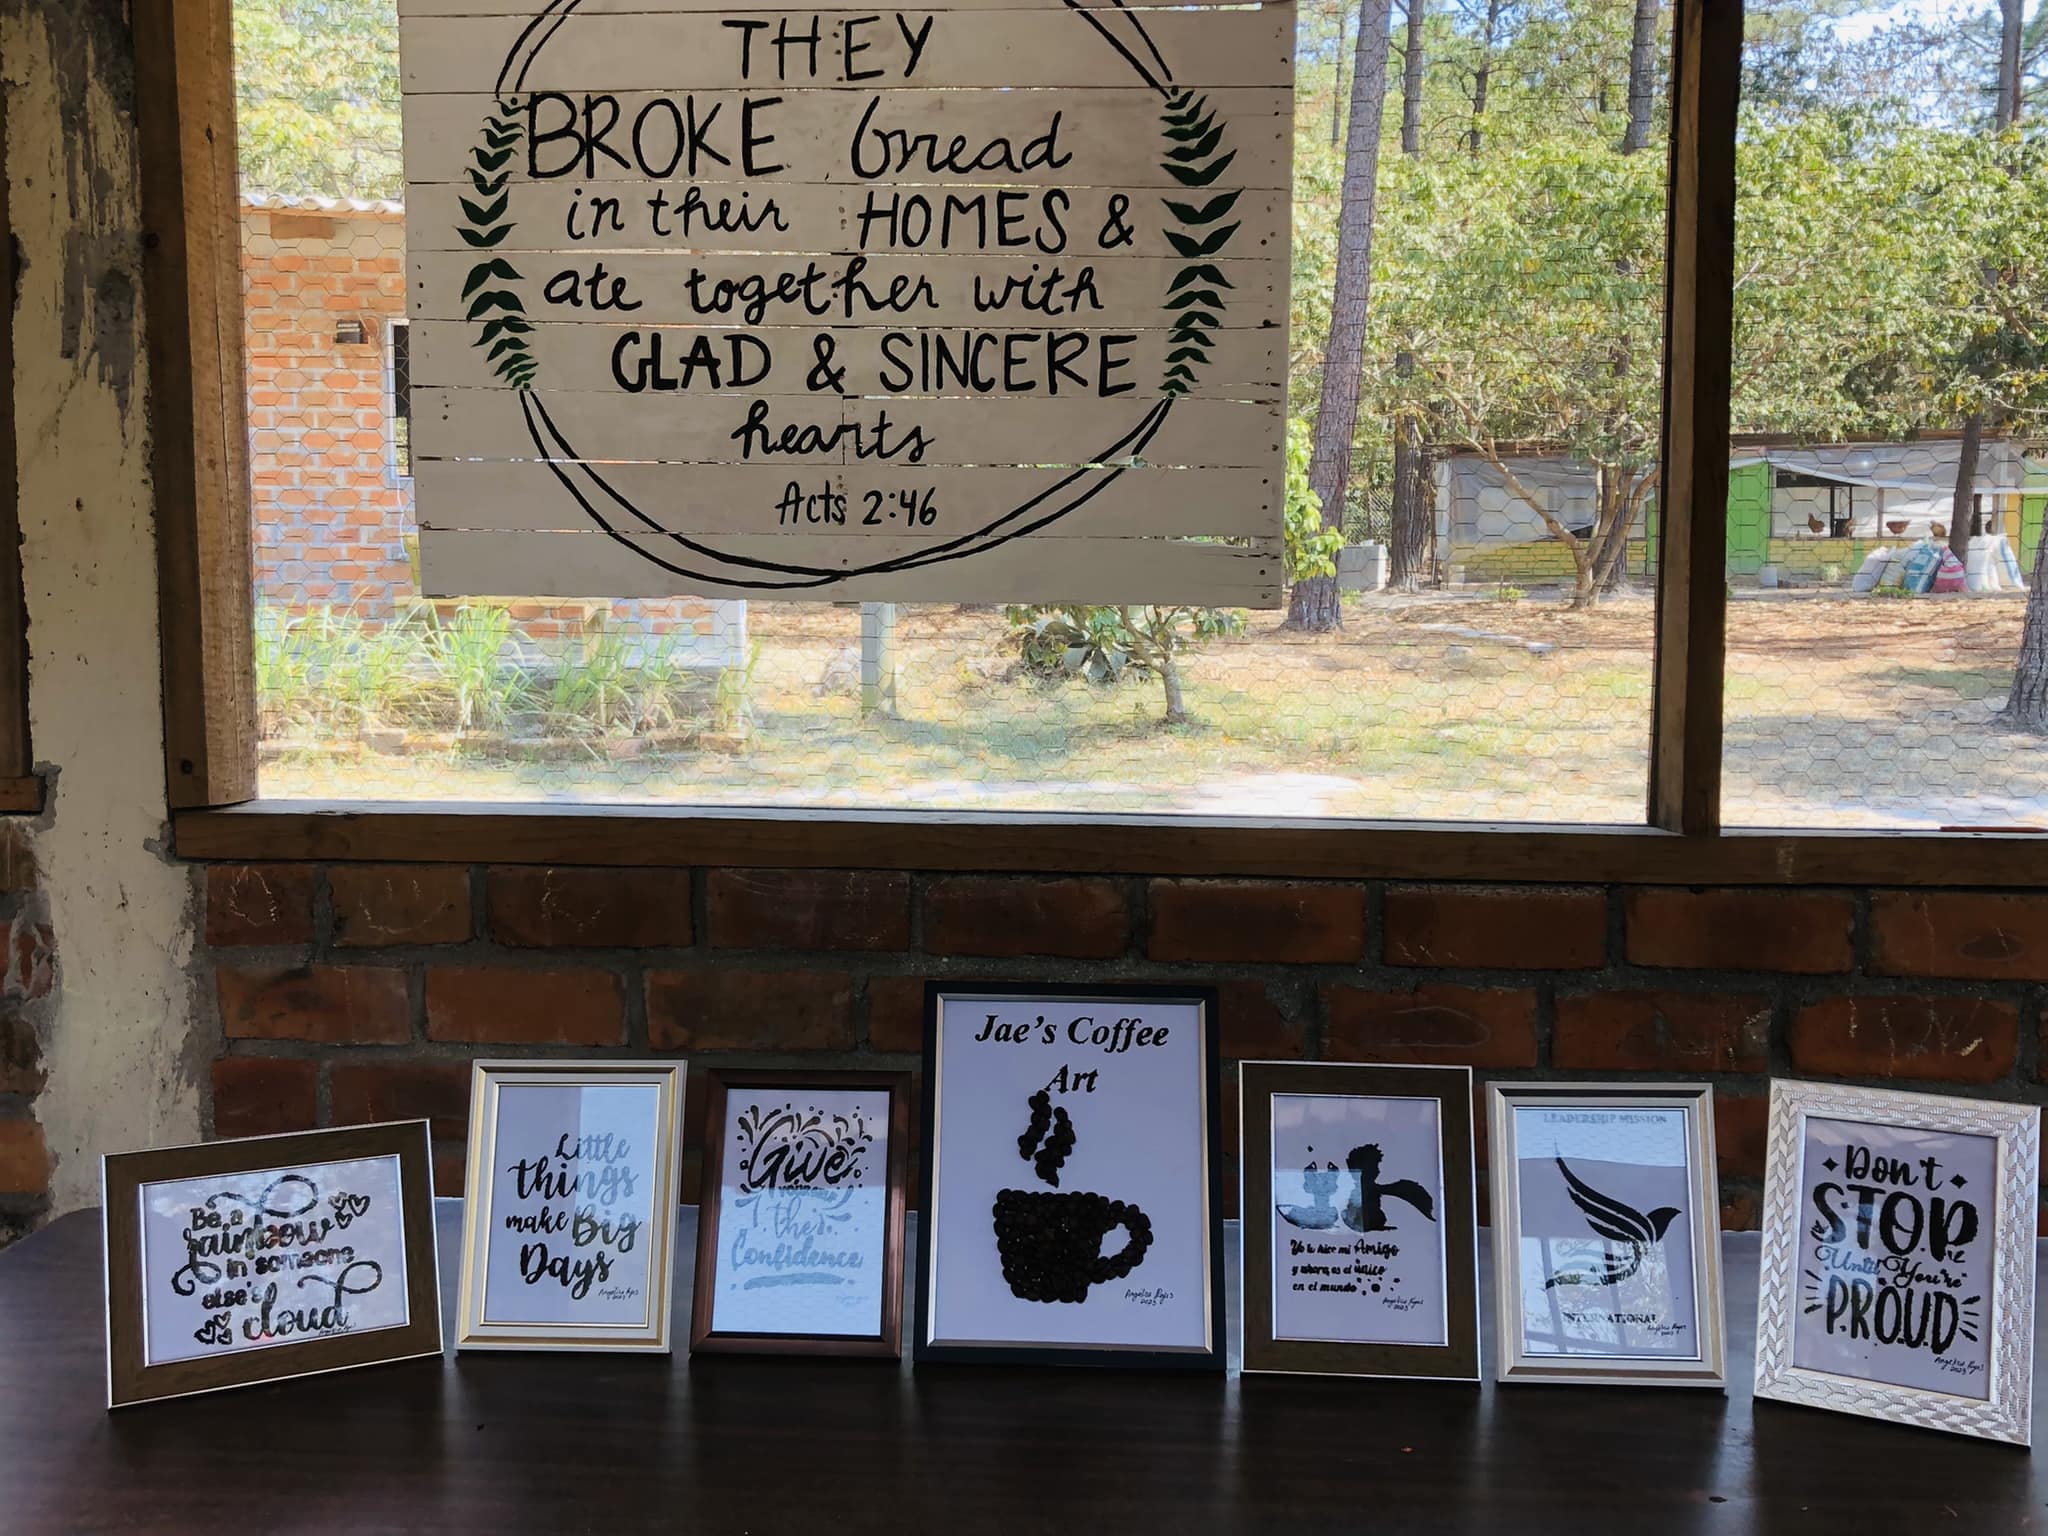 THEY
BROKE bread
in their HOMES &
ate together with
GLAD & SINCERE
hearts
Acts 2:46
Be a
rainbow
in someone
else's
cloud
Little
things
make Big
Days
Angelica Rojas
2023
Give
yourself
the
Confidence
Jae's Coffee
Art
Angelica Rojas
2023
Yo lo hice mi Amigo
y ahora es el único
en el mundo
Angelica Rojas
2023
LEADERSHIP MISSION
INTERNATIONAL
Angelica Rojas
2023
Don't
STOP
Until You're
PROUD
Angelica Rojas
2023